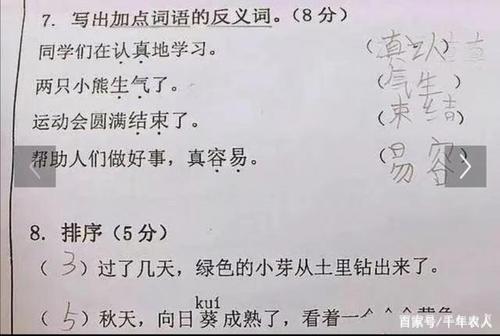 7. 写出加点词语的反义词。(8分)
同学们在认真地学习。 (真认)
两只小熊生气了。 (气生)
运动会圆满结束了。 (束结)
帮助人们做好事，真容易。 (易容)
8. 排序(5分)
(3)过了几天，绿色的小芽从土里钻出来了。
kuí
(5)秋天，向日葵成熟了，看着一个个
百家号/千年农人